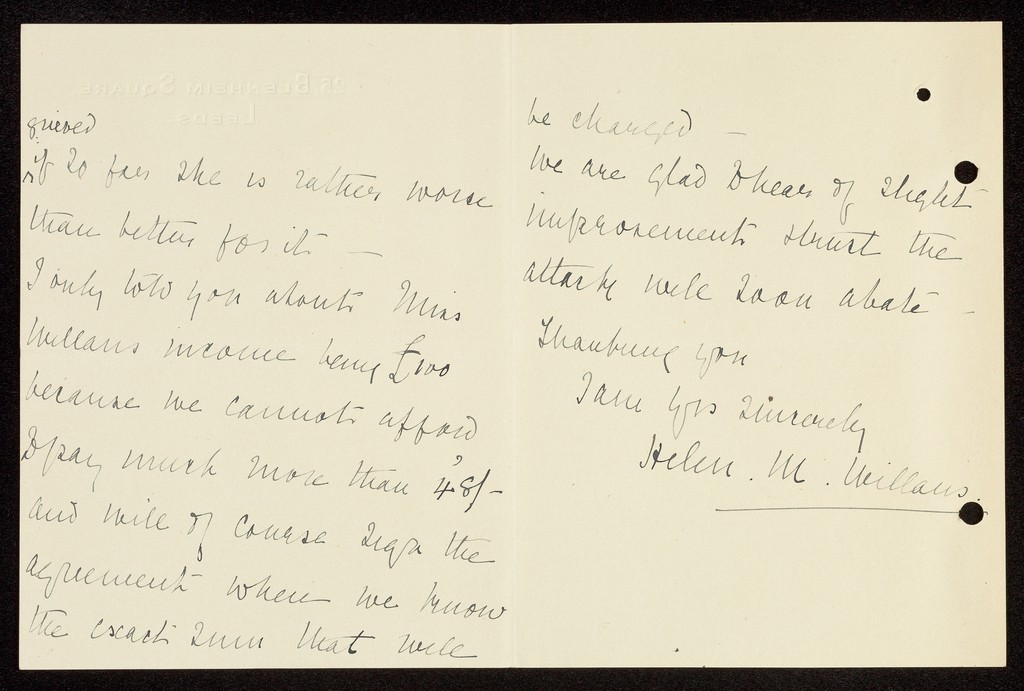 25, BLENHEIM SQUARE,
LEEDS.
grieved
if so far she is rather worse
than better for it —
I only told you about Miss
Willans income being £100
because we cannot afford
to pay much more than 48/-
and will of course sign the
agreement when we know
the exact sum that will
be charged —
We are glad to hear of slight
improvement & trust the
attacks will soon abate —
Thanking you
I am yrs sincerely
Helen. M. Willans.